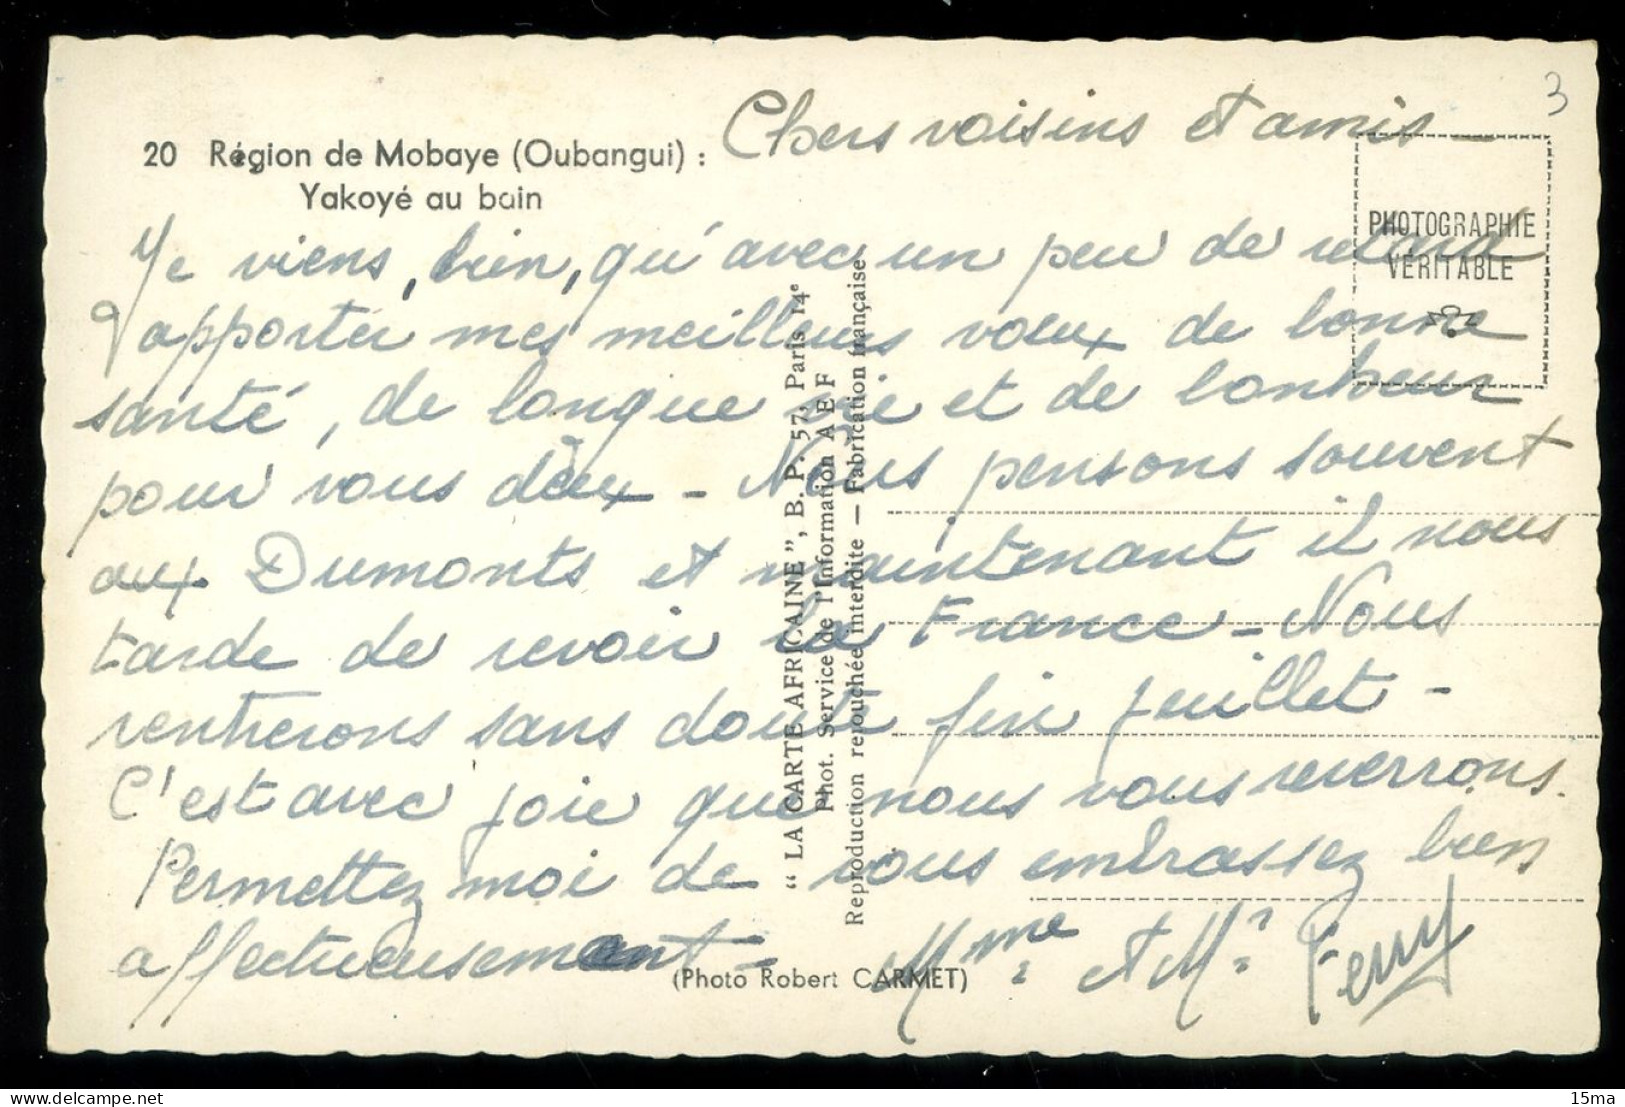 3
20 Région de Mobaye (Oubangui) :
Yakoyé au bain
Chers voisins et amis -
PHOTOGRAPHIE
VÉRITABLE
Je viens, bien, qu'avec un peu de retard
apporter mes meilleurs vœux de bonne
santé, de longue vie et de bonheur
pour vous deux - Nous pensons souvent
aux Dumonts et maintenant il nous
tarde de revoir la France - Nous
rentrerons sans doute fin juillet -
C'est avec joie que nous vous reverrons.
Permettez moi de vous embrassez bien
affectueusement -
Mme et Mr Ferry
(Photo Robert CARMET)
“ LA CARTE AFRICAINE ”, B. P. 57, Paris 14e
Phot. Service de l'Information A E F
Reproduction retouchée interdite — Fabrication française
15ma